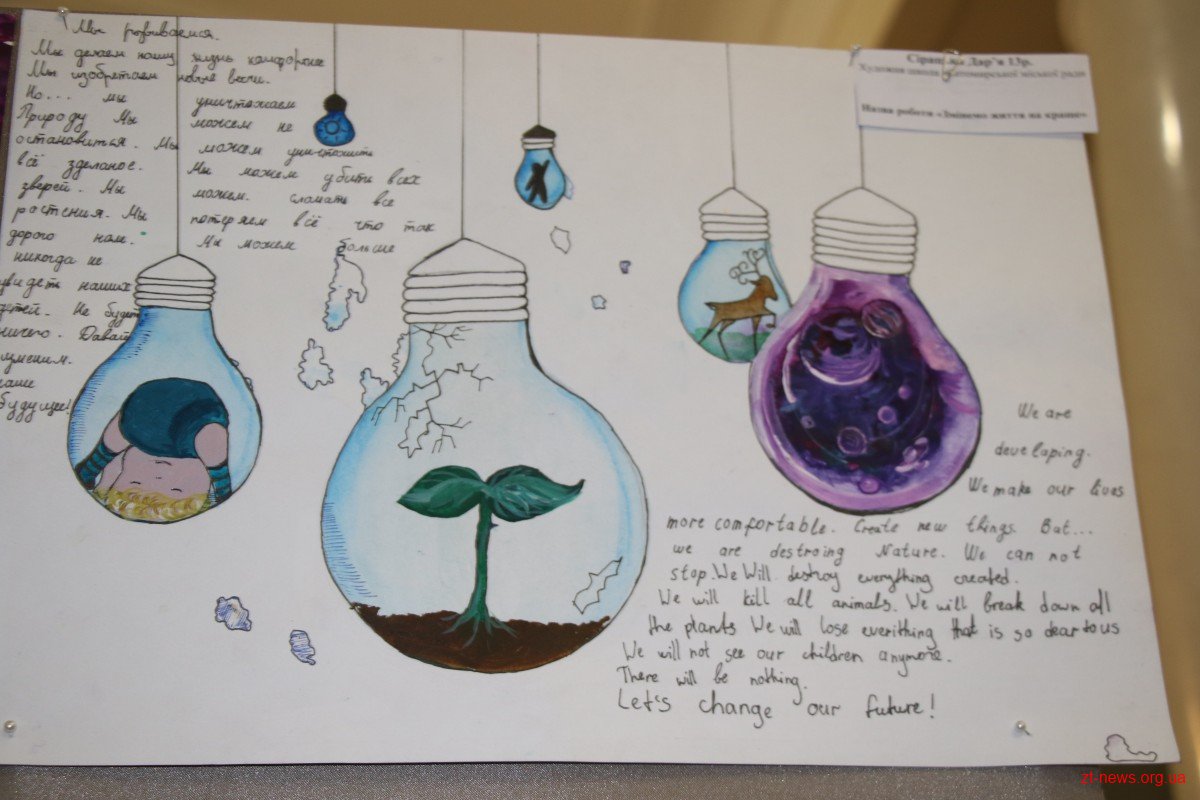 Мы развиваемся.
Мы делаем нашу жизнь комфортнее
Мы изобретаем новые вещи.
Но... мы уничтожаем
Природу Мы можем не
остановиться. Мы можем уничтожить
всё зделаное. Мы можем убить всех
зверей. Мы можем. сломать все
растения. Мы потеряем всё что так
дорого нам. Мы можем больше
никогда не
увидеть наших
детей. Не будет
ничего. Давай
изменим.
наше
будущее!
Дар'я 13р.
Художня школа міської ради
Назва роботи «Змінимо життя на краще».
We are
developing.
We make our lives
more comfortable. Create new things. But...
we are destroing Nature. We can not
stop. We Will destroy everything created.
We will kill all animals. We will break down all
the plants We will lose everithing that is so dear to us
We will not see our children anymore.
There will be nothing.
Let's change our future!
zt-news.org.ua